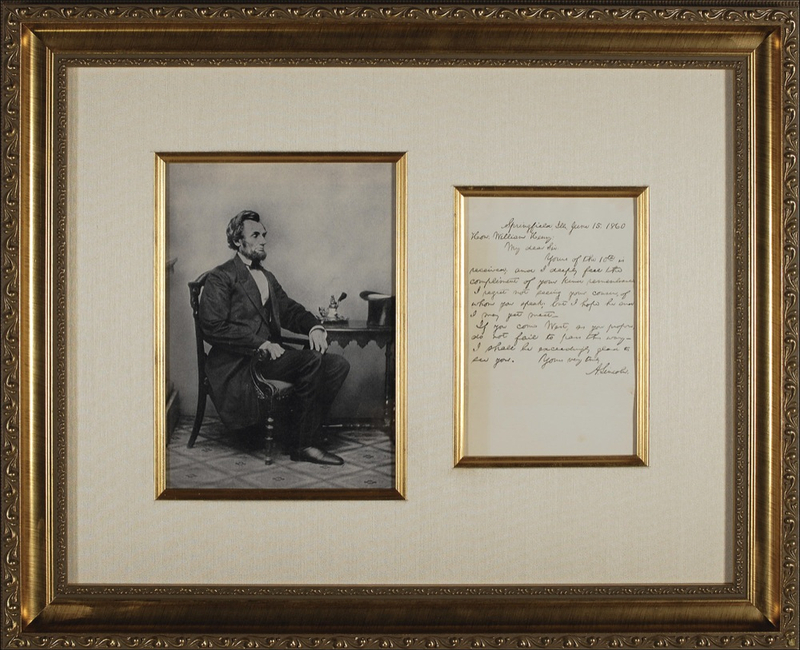 Springfield, Ills. June 15. 1860
Hon. William Kenny
My dear Sir
Yours of the 10th is
received, and I deeply feel the
compliment of your kind remembrance
I regret not seeing your cousin, of
whom you speak; but I hope he and
I may yet meet.
If you come West, as you propose
do not fail to pass this way.
I shall be exceedingly glad to
see you. Yours very truly
A. Lincoln